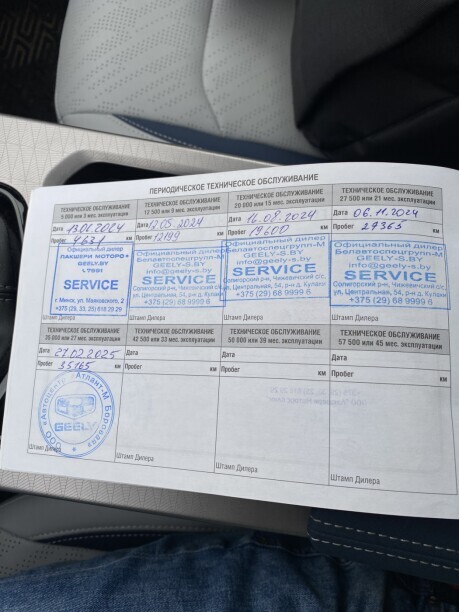 ПЕРИОДИЧЕСКОЕ ТЕХНИЧЕСКОЕ ОБСЛУЖИВАНИЕ
ТЕХНИЧЕСКОЕ ОБСЛУЖИВАНИЕ
5 000 или 3 мес. эксплуатации
Дата 13.01.2024
Пробег 4631 км
Официальный дилер
ЛАКШЕРИ МОТОРС
GEELY.BY
SERVICE
г. Минск, ул. Маяковского, 2
+375 (29, 33, 25) 618 29 29
Штамп Дилера
ТЕХНИЧЕСКОЕ ОБСЛУЖИВАНИЕ
12 500 или 9 мес. эксплуатации
Дата 12.05.2024
Пробег 12199 км
Официальный дилер
Белавтоспецгрупп-М
GEELY-S.BY
info@geely-s.by
SERVICE
Солигорский р-н, Чижевичский с/с,
ул. Центральная, 54, р-н д. Кулаки
+375 (29) 68 9999 6
Штамп Дилера
ТЕХНИЧЕСКОЕ ОБСЛУЖИВАНИЕ
20 000 или 15 мес. эксплуатации
Дата 16.08.2024
Пробег 19600 км
Официальный дилер
Белавтоспецгрупп-М
GEELY-S.BY
info@geely-s.by
SERVICE
Солигорский р-н, Чижевичский с/с,
ул. Центральная, 54, р-н д. Кулаки
+375 (29) 68 9999 6
ТЕХНИЧЕСКОЕ ОБСЛУЖИВАНИЕ
27 500 или 21 мес. эксплуатации
Дата 06.11.2024
Пробег 27365 км
Официальный дилер
Белавтоспецгрупп-М
GEELY-S.BY
info@geely-s.by
SERVICE
Солигорский р-н, Чижевичский с/с,
ул. Центральная, 54, р-н д. Кулаки
+375 (29) 68 9999 6
ТЕХНИЧЕСКОЕ ОБСЛУЖИВАНИЕ
35 000 или 27 мес. эксплуатации
Дата 27.02.2025
Пробег 35165 км
«Автоцентр Атлант-М Боровая»
ООО
GEELY
Штамп Дилера
ТЕХНИЧЕСКОЕ ОБСЛУЖИВАНИЕ
42 500 или 33 мес. эксплуатации
Дата
Пробег км
Штамп Дилера
ТЕХНИЧЕСКОЕ ОБСЛУЖИВАНИЕ
50 000 или 39 мес. эксплуатации
Дата
Пробег км
Штамп Дилера
ТЕХНИЧЕСКОЕ ОБСЛУЖИВАНИЕ
57 500 или 45 мес. эксплуатации
Дата
Пробег км
Штамп Дилера